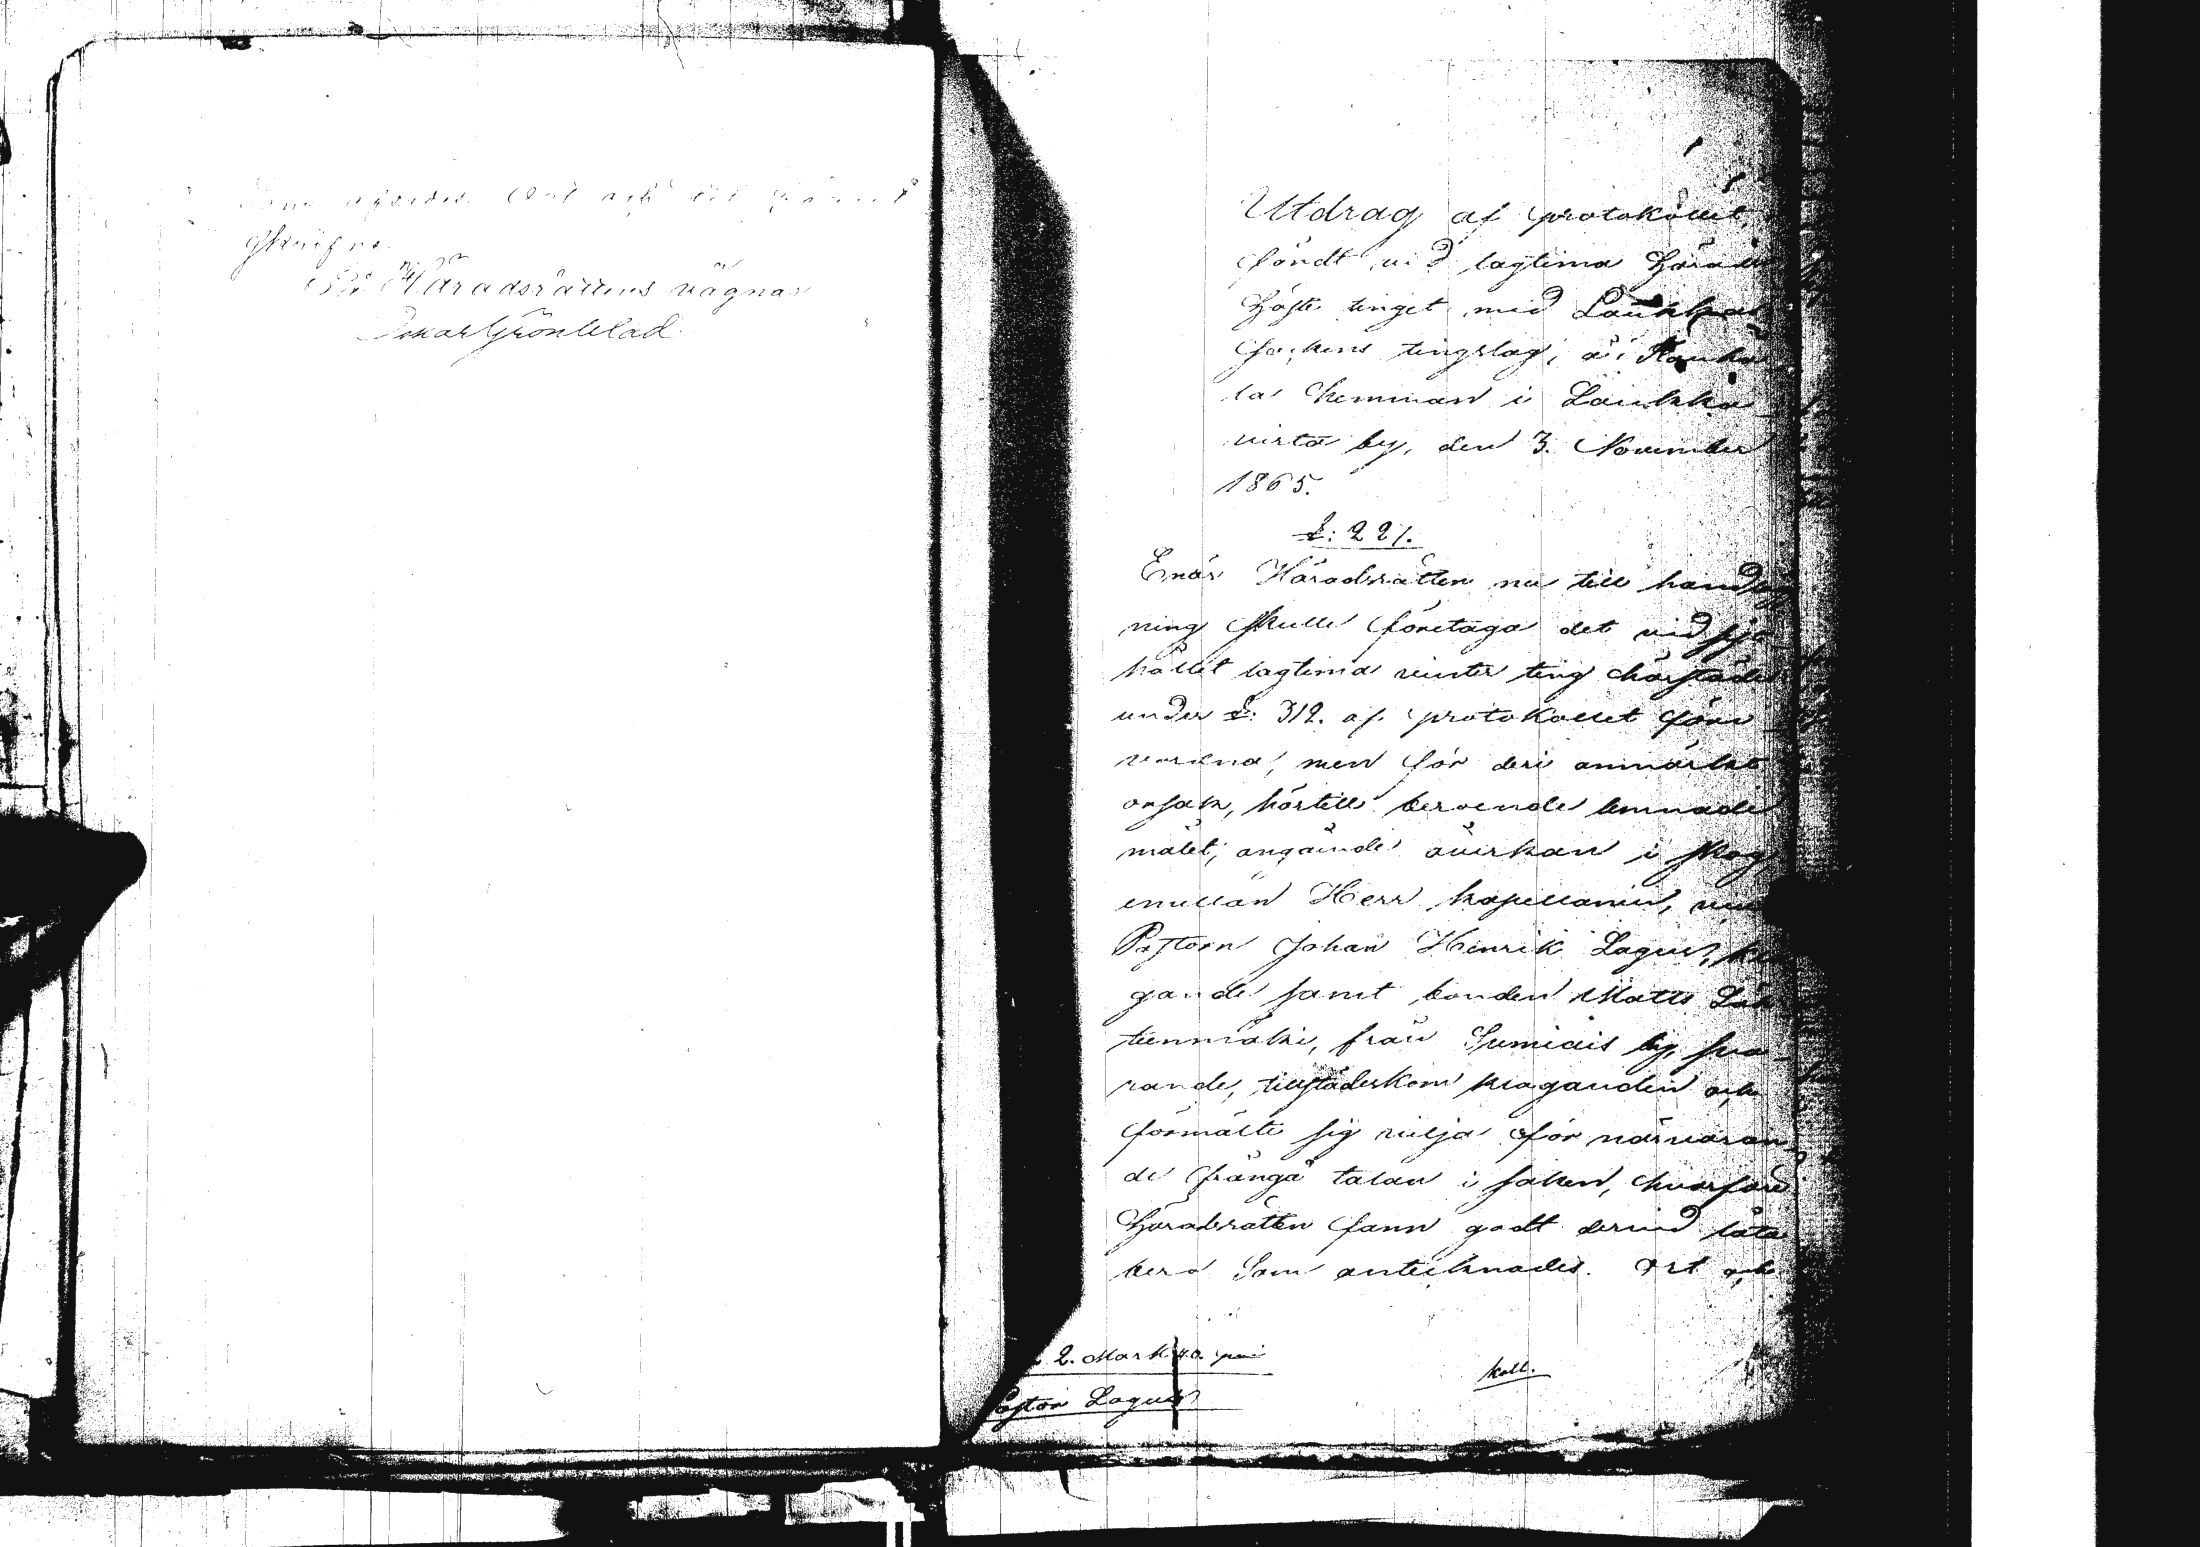 afsades. Ort och tid förut
skrifne.
På Häradsrättens vägnar
Oskar Grönblad
Utdrag af protokollet,
fördt vid lagtima Härads
Höste tinget med Laukkas
Sockens tingslag, å Kauka
la hemman i Laukka
virta by, den 3. November
1865.
§: 221.
Enär Häradsrätten nu till handlägg
ning skulle företaga det vid sist
hållet lagtima vinter ting härstädes
under §: 312. af protokollet före
vordna, men för deri anmärkt
orsak, härtill beroende lemnade
målet, angående åverkan i skog
emellan Herr kapellanen, vice
Pastorn Johan Henrik Lagus, kä
gande samt bonden Matts
tienmäki, från Sumiais by, sva
rande, tillstädeskom käraganden och
förmälte sig vilja för närvaran
de frångå talan i saken, hvarföre
Häradsrätten fann godt dervid låta
bero Som antecknades. Ort och
2. Mark 40. peni
Pastor Lagus
koll.